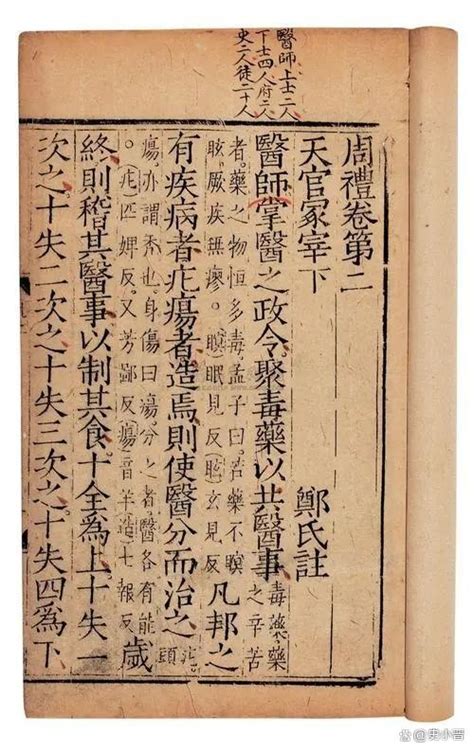 醫師上士二人
下士四人府二人
史二人徒二十人
周禮卷第二
天官冢宰下 鄭氏註
醫師掌醫之政令聚毒藥以共醫事
毒藥藥
之辛苦
者。藥之物恒多毒。孟子曰。若藥不瞑
眩厥疾無瘳。瞑眠見反眩玄見反
凡邦之
有疾病者疕瘍者造焉則使醫分而治之
疕頭
瘍亦謂禿也。身傷曰瘍。分之者。醫各有能
。疕匹婢反。又芳鄙反瘍音羊造七報反
歲
終則稽其醫事以制其食十全為上十失一
次之十失二次之十失三次之十失四為下